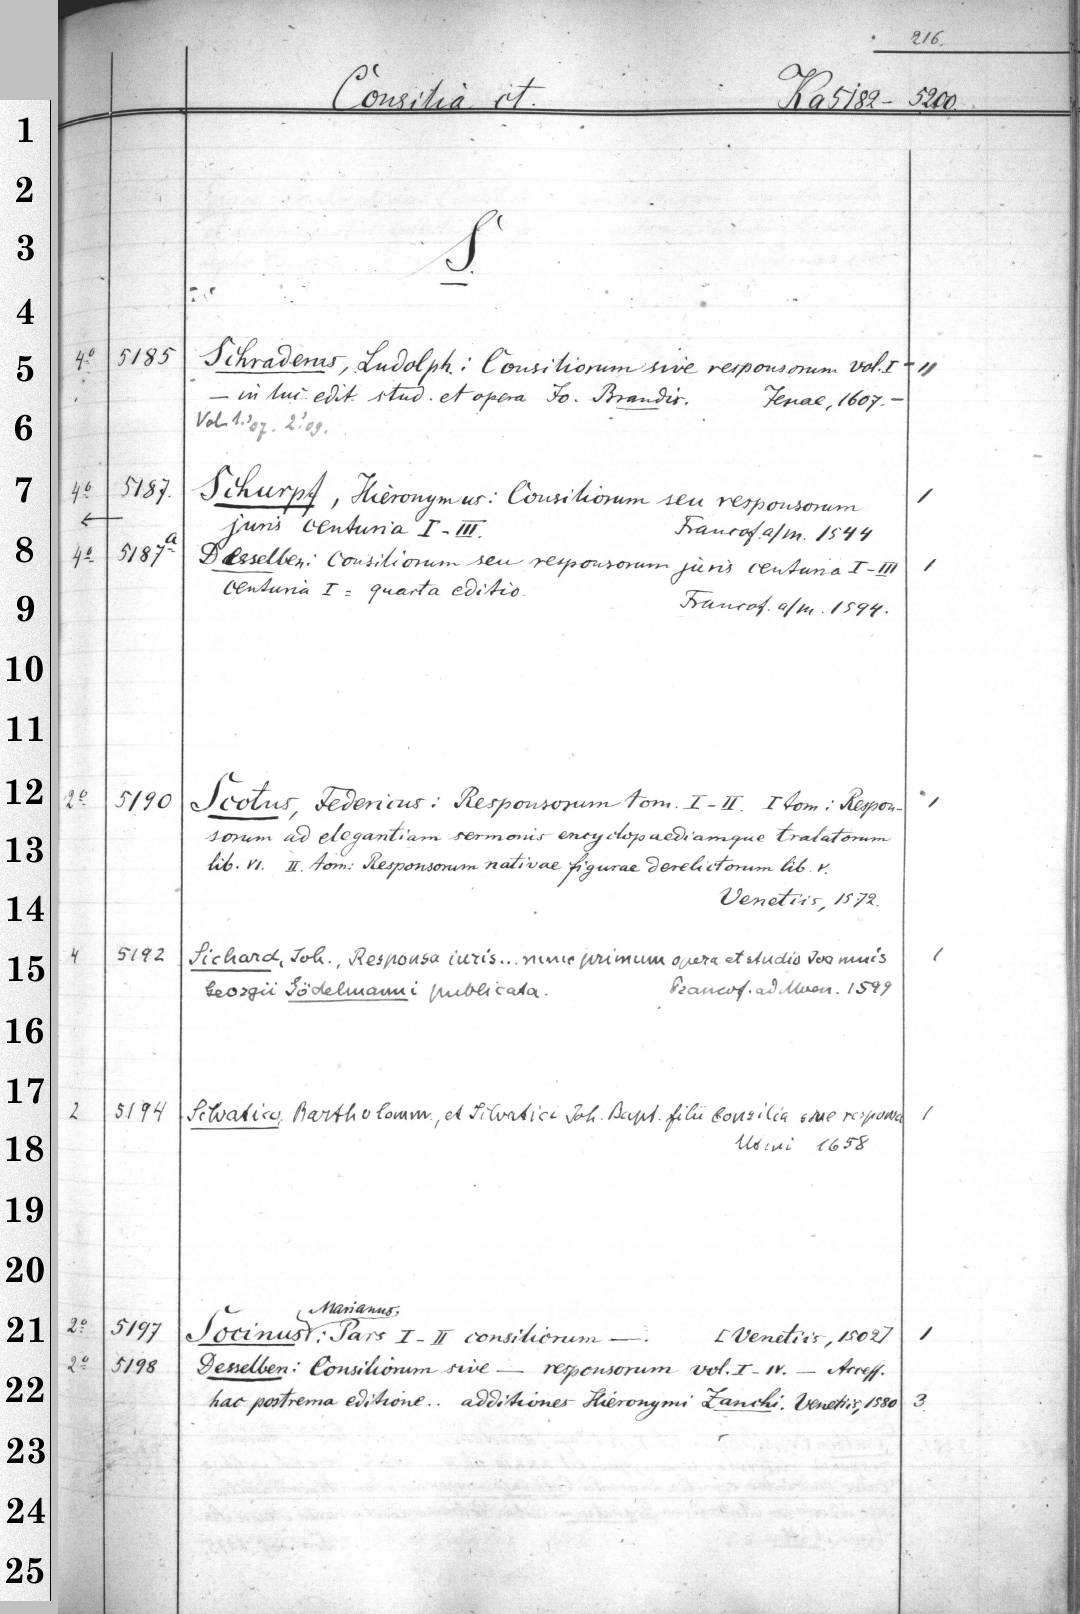 216.
Consilia it. Ka 5182 - 5200.
S.
4º 5185 Schraderus, Ludolph.: Consiliorum sive responsorum vol. I - II
— in luc. edit. stud. et opera Jo. Brandis. Jenae, 1607. -
Vol. 1: 07. 2: 09.
4º 5187. Schurpf, Hieronymus: Consiliorum seu responsorum 1
juris centuria I - III. Francof. a/m. 1544
4º 5187a Desselben: Consiliorum seu responsorum juris centuria I - III 1
centuria I = quarta editio.
Francof. a/m. 1594.
2º 5190 Scotus, Federicus: Responsorum tom. I - II. I tom: Respon- 1
sorum ad elegantiam sermonis encyclopaediamque tralatorum
lib. VI. II. tom: Responsorum nativae figurae derelictorum lib. V.
Venetiis, 1572.
4 5192 Sichard, Joh., Responsa iuris... nunc primum opera et studio Joannis 1
Georgii Gödelmanni publicata. Francof. ad Moen. 1599
2 5194 Silvaticus, Bartholomm., et Silvatici Joh. Bapt. filii Consilia sive responsa 1
Utini 1658
Marianus,
2º 5197 Socinus: Pars I - II consiliorum —. [Venetiis, 1502] 1
2º 5198 Desselben: Consiliorum sive — responsorum vol. I - IV. — Access.
hac postrema editione.. additiones Hieronymi Zanchi. Venetiis, 1580 3
1
2
3
4
5
6
7
8
9
10
11
12
13
14
15
16
17
18
19
20
21
22
23
24
25